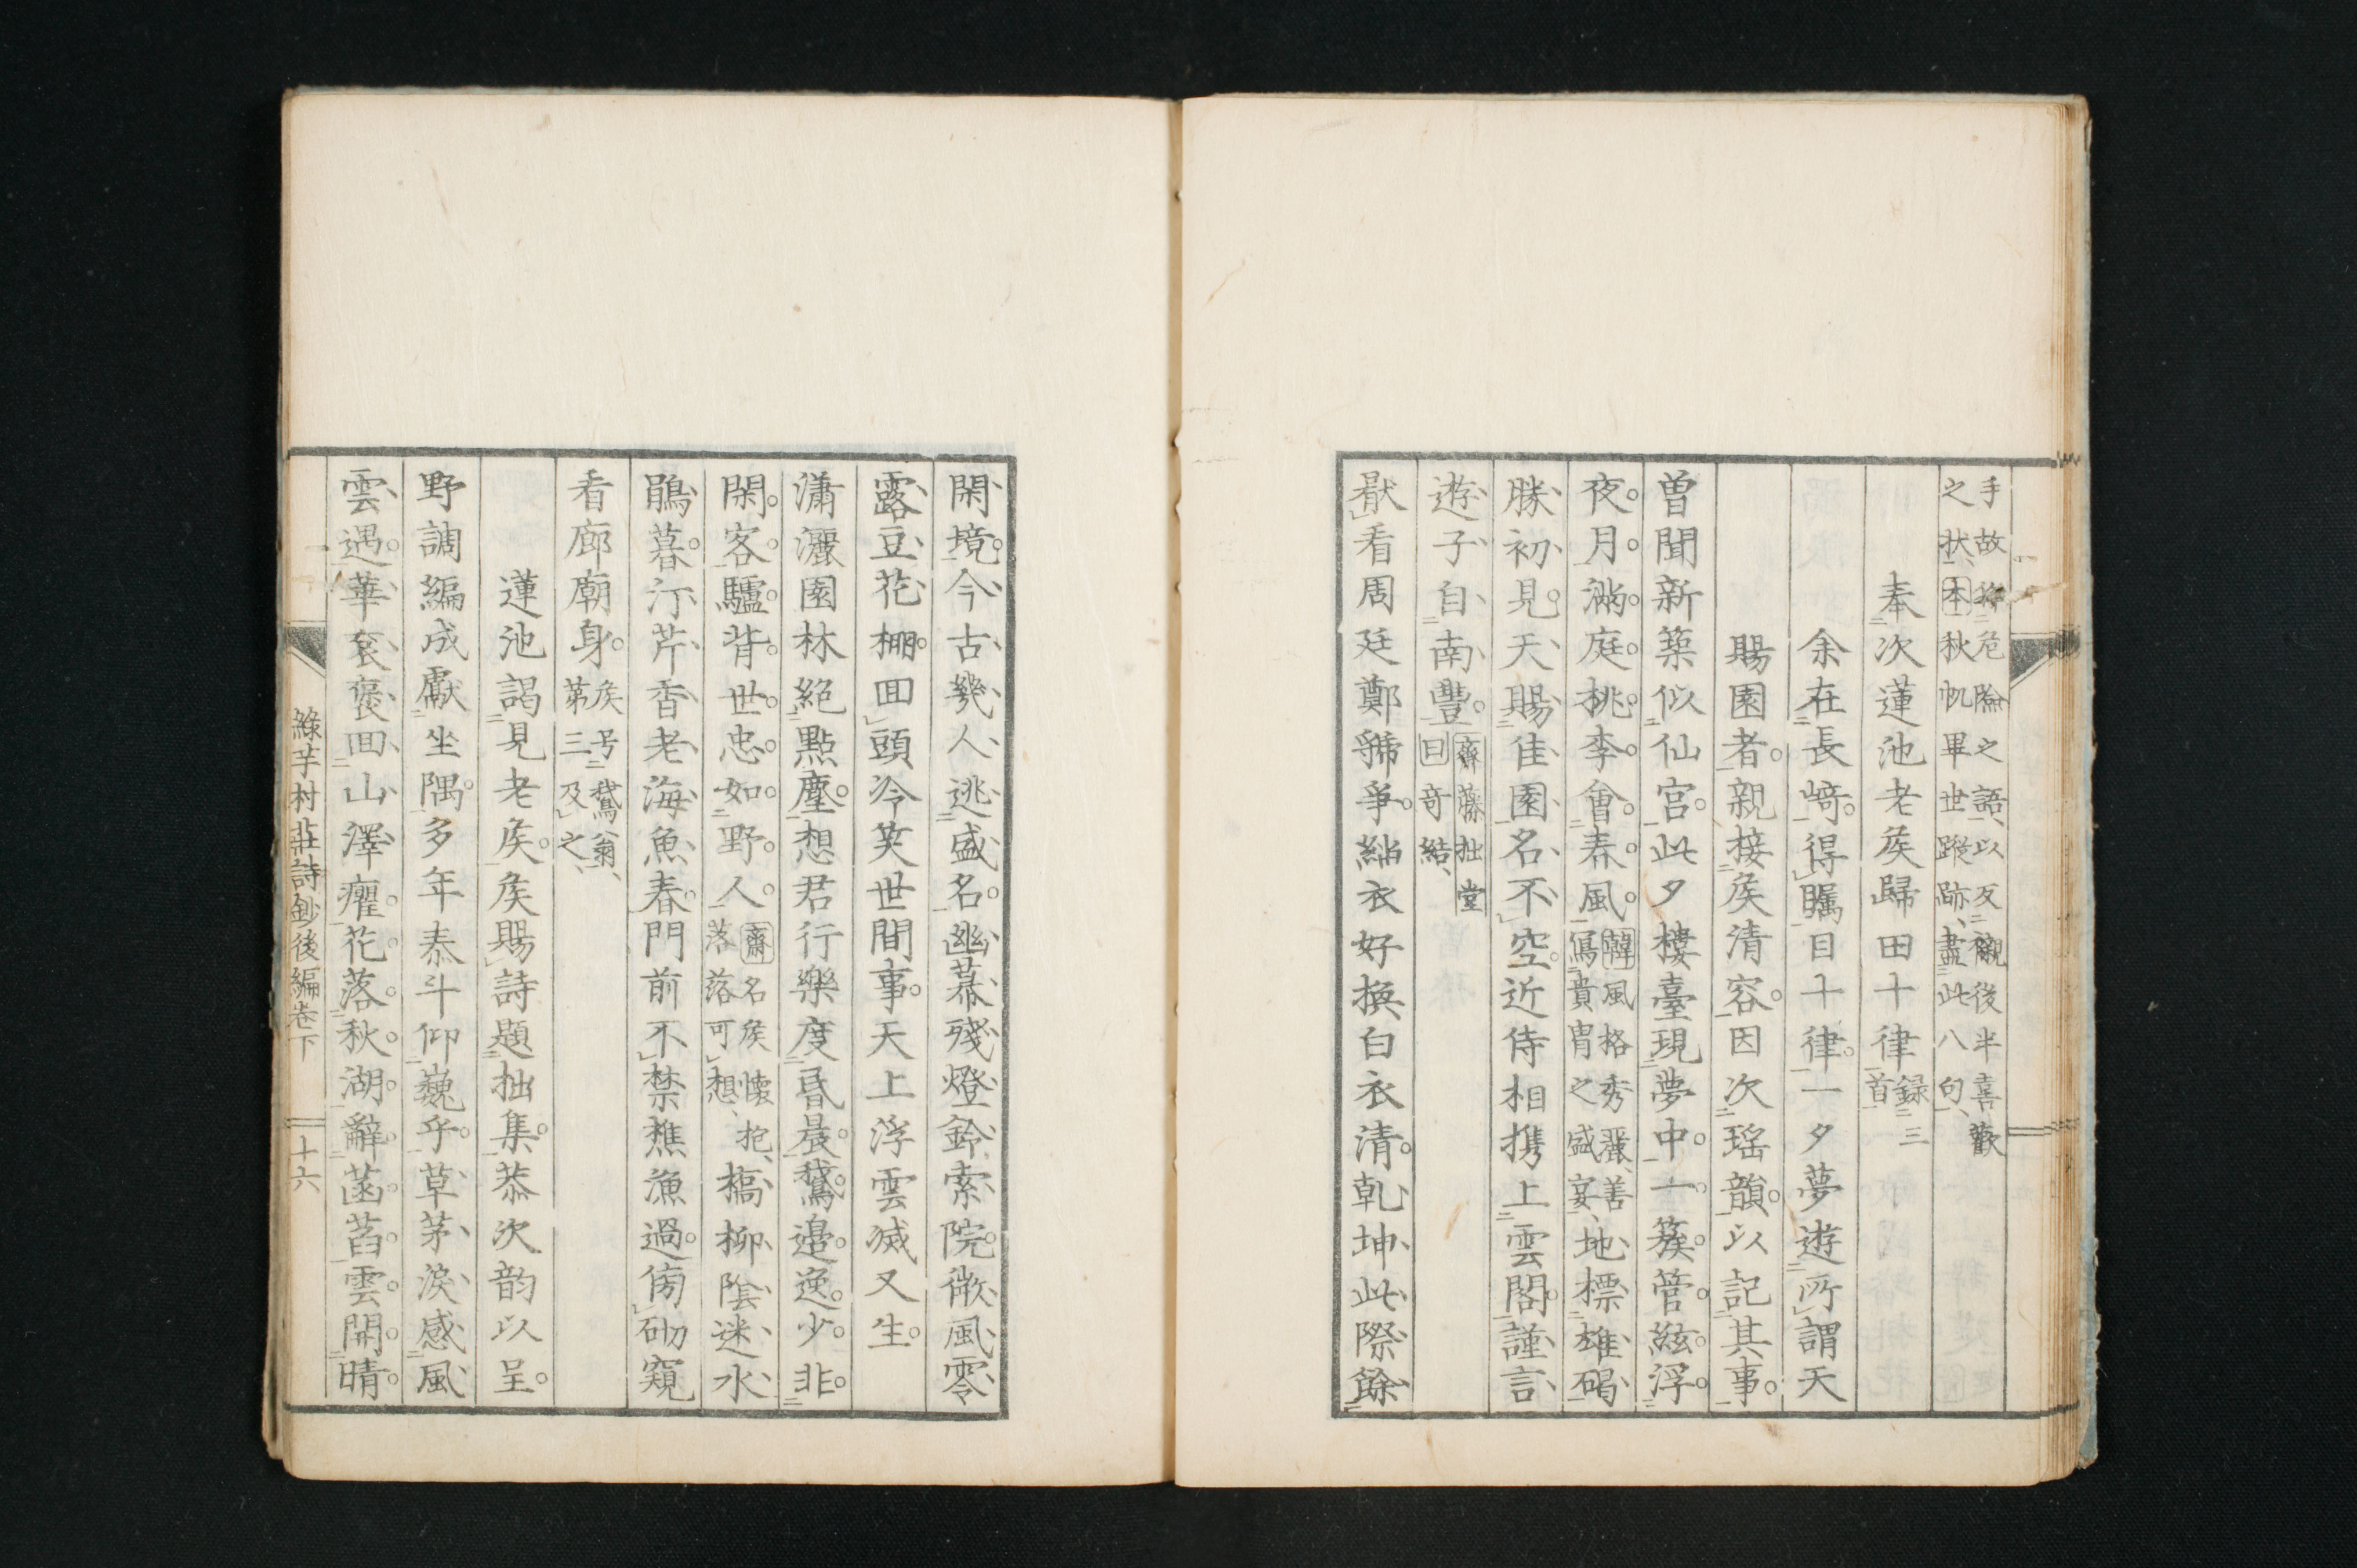 手故将危險之語、以反襯後半喜歡
之状、本秋帆畢世蹤跡、盡此八句、
奉次蓮池老矦歸田十律録三首
余在長﨑。得矚目十律。一夕夢遊所謂天
賜園者。親接矦清容。因次瑶韻。以記其事。
曽聞新築似仙宮。此夕樓臺現夢中。一簇管絃浮
夜月。滿庭桃李會春風。韓風格秀麗、善寫貴胄之盛宴、地標雄碣
勝初見。天賜佳園名不空。近侍相携上雲閣。謹言
遊子自南豐。齋藤拙堂曰竒結、
猒看周廷鄭虢爭。緇衣好換白衣清。乾坤此際餘
閑境。今古幾人逃盛名。幽幕殘燈鈴索院。微風零
露豆花棚。回頭冷笑世間事。天上浮雲滅又生。
瀟灑園林絕點塵。想君行樂度昏晨。鵞邉逸少非
閑客。驢背世忠如野人。齋名矦懐抱、落落可想、橋柳陰迷水
鵑暮。汀芹香老海魚春。門前不禁樵漁過。傍砌窺
看廊廟身。矦号鵞翁、第三及之、
蓮池謁見老矦。矦賜詩題拙集。恭次韵以呈。
野調編成獻坐隅。多年泰斗仰巍乎。草茅淚感風
雲遇。華袞褒回山澤癯。花落秋湖辭菡萏。雲開晴
綠芋村莊詩鈔後編卷下 十六